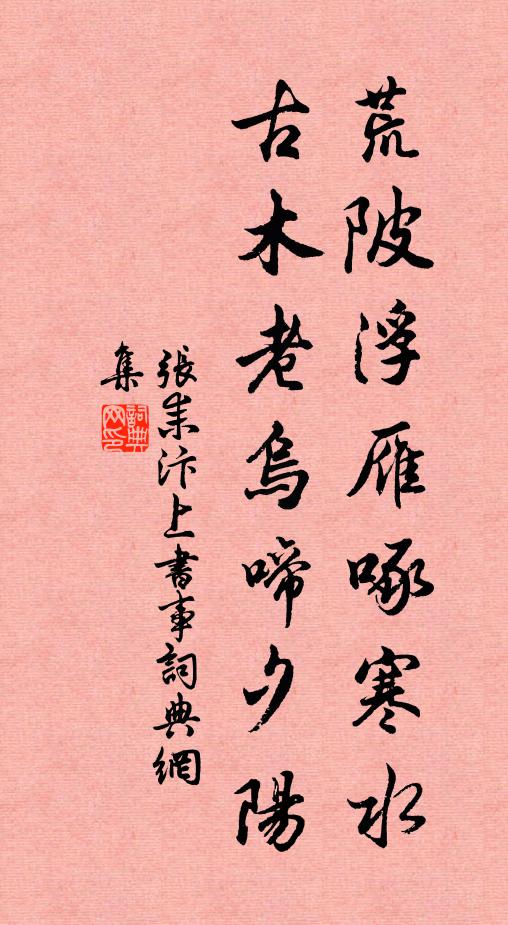 荒陂浮雁啄寒水
古木老烏啼夕陽
張耒汴上書事詞典網
集
詞典网印